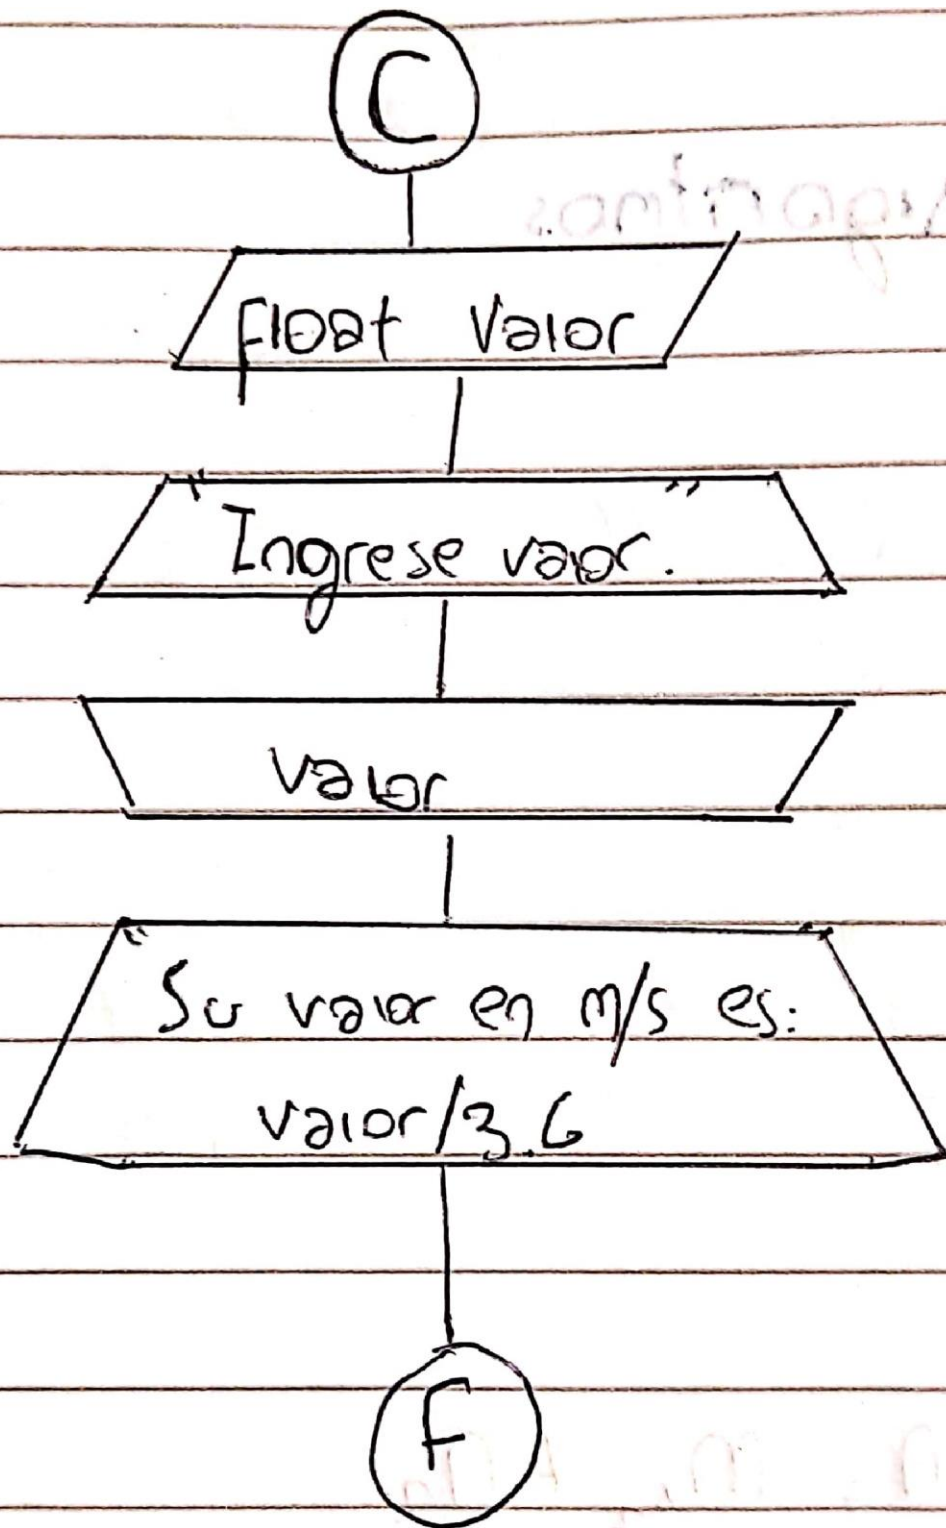 C
float Valor
"Ingrese valor."
valor
"Su valor en m/s es:"
valor/3.6
F